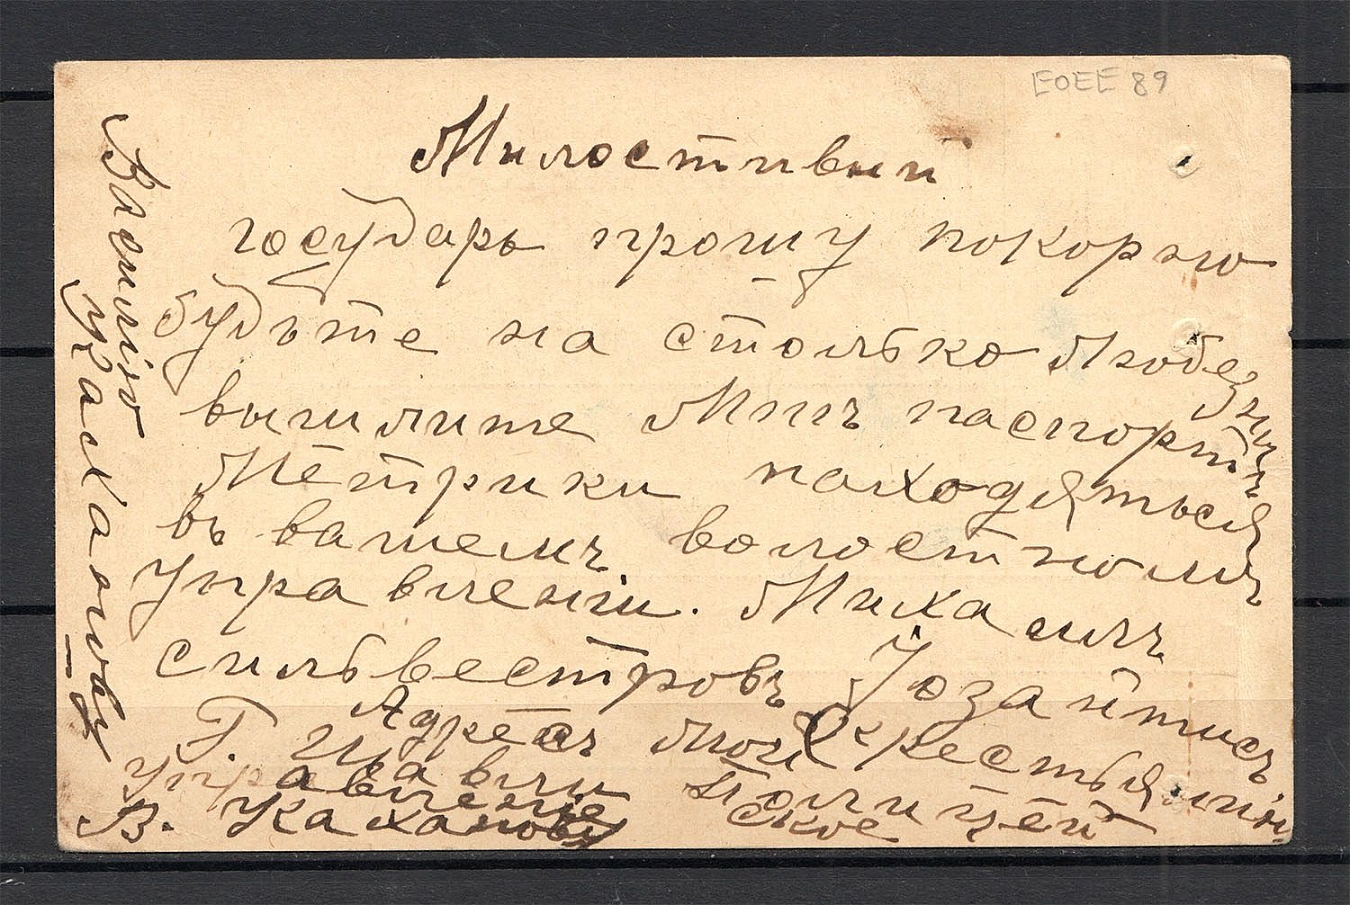 EOEE 89
Милостивий
государь прошу покорно
будьте на столько Любезнымъ
вышлите Мнъ паспортъ
Метрики находяться
въ вашемъ волостномъ
Управленіи. Михаилъ
сильвестровъ Іозайтисъ
Адресъ Мой Крестьянинъ
Г. Шавли Полицей
управленіе ское
В. Кахановy
Василію
Кахановy